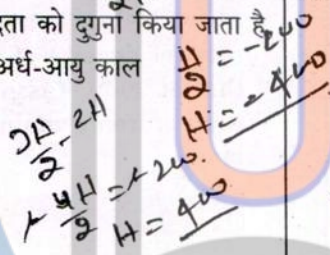 ता को दुगुना किया जाता है,
अर्ध-आयु काल
H/2 = -200
H = -400
3H/2 - 2H
- 4H/2 = -200.
H = 400